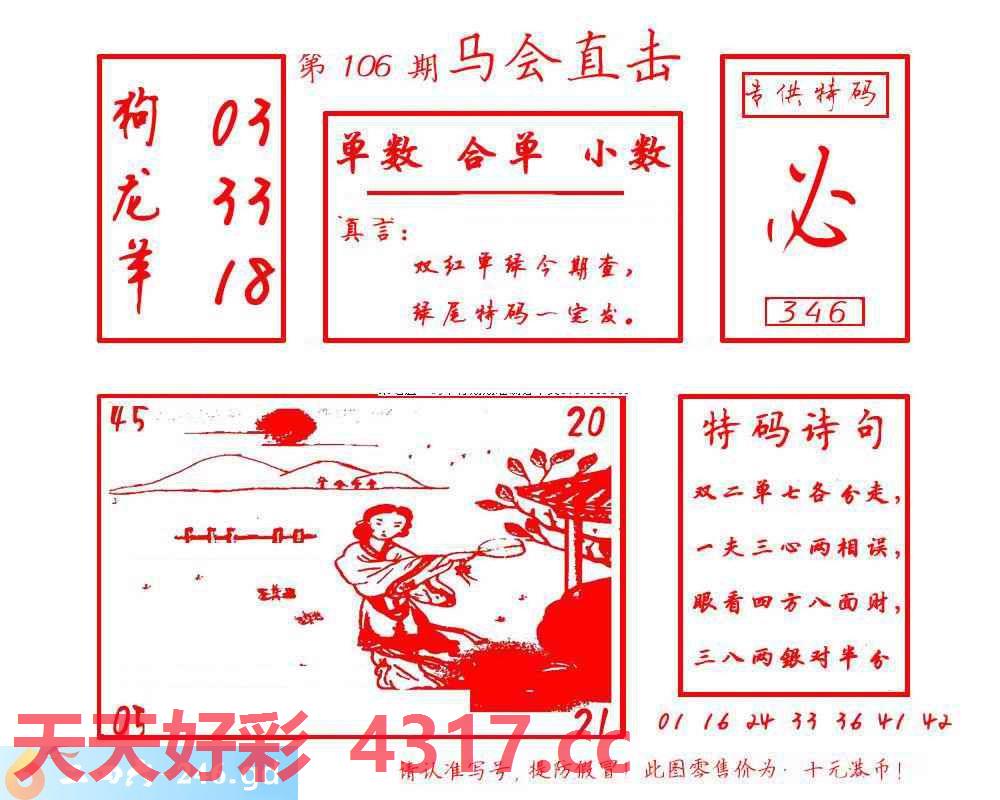 第 106 期 马会直击
狗 03
龙 33
羊 18
单数 合单 小数
真言：
双红单绿今期查，
绿尾特码一定发。
专供特码
必
346
45
20
05
21
特码诗句
双二单七各分走，
一夫三心两相误，
眼看四方八面财，
三八两銀对半分
01 16 24 33 36 41 42
天天好彩 4317.cc
246.gd
请认准写号，提防假冒！此图零售价为·十元港币！